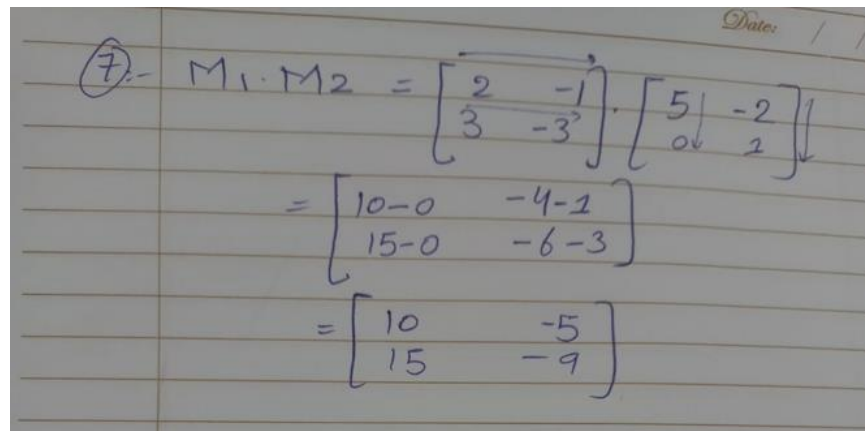 Date: / /
7:- M1. M2 = [ 2 -1 ] . [ 5 -2 ]
[ 3 -3 ] [ 0 1 ]
= [ 10-0 -4-1 ]
[ 15-0 -6-3 ]
= [ 10 -5 ]
[ 15 -9 ]